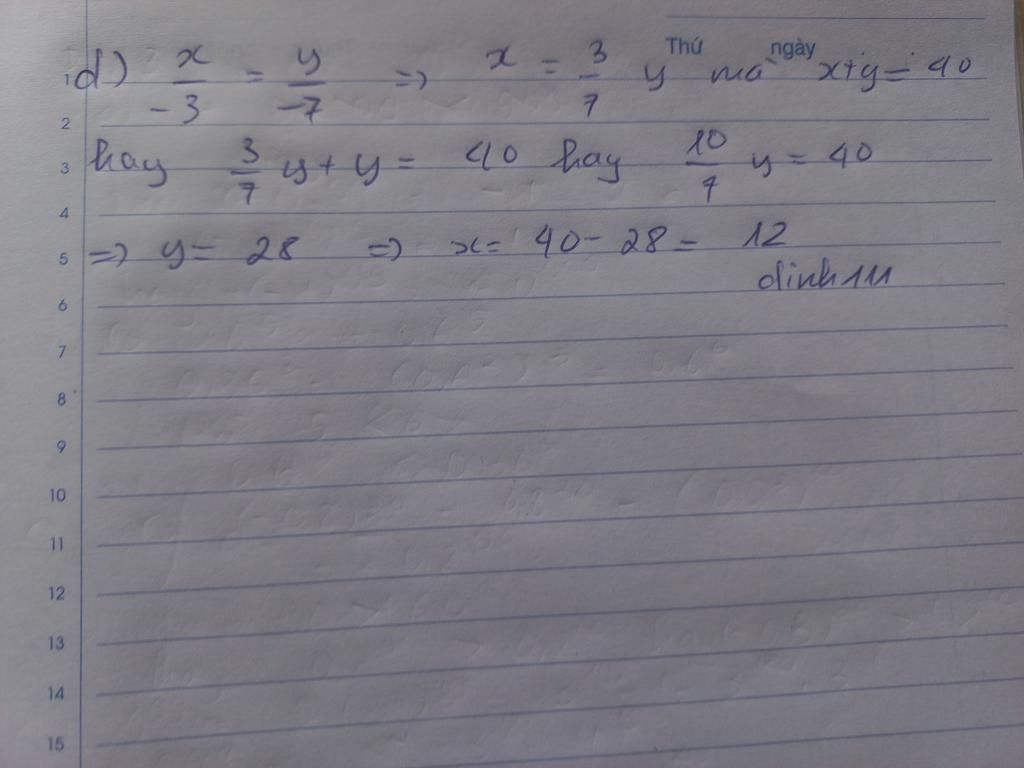 Thứ ngày
1 d) x/-3 = y/-7 => x = 3/7 y mà x+y = 40
2
3 hay 3/7 y + y = 40 hay 10/7 y = 40
4
5 => y = 28 => x = 40 - 28 = 12
dinh111
6
7
8
9
10
11
12
13
14
15